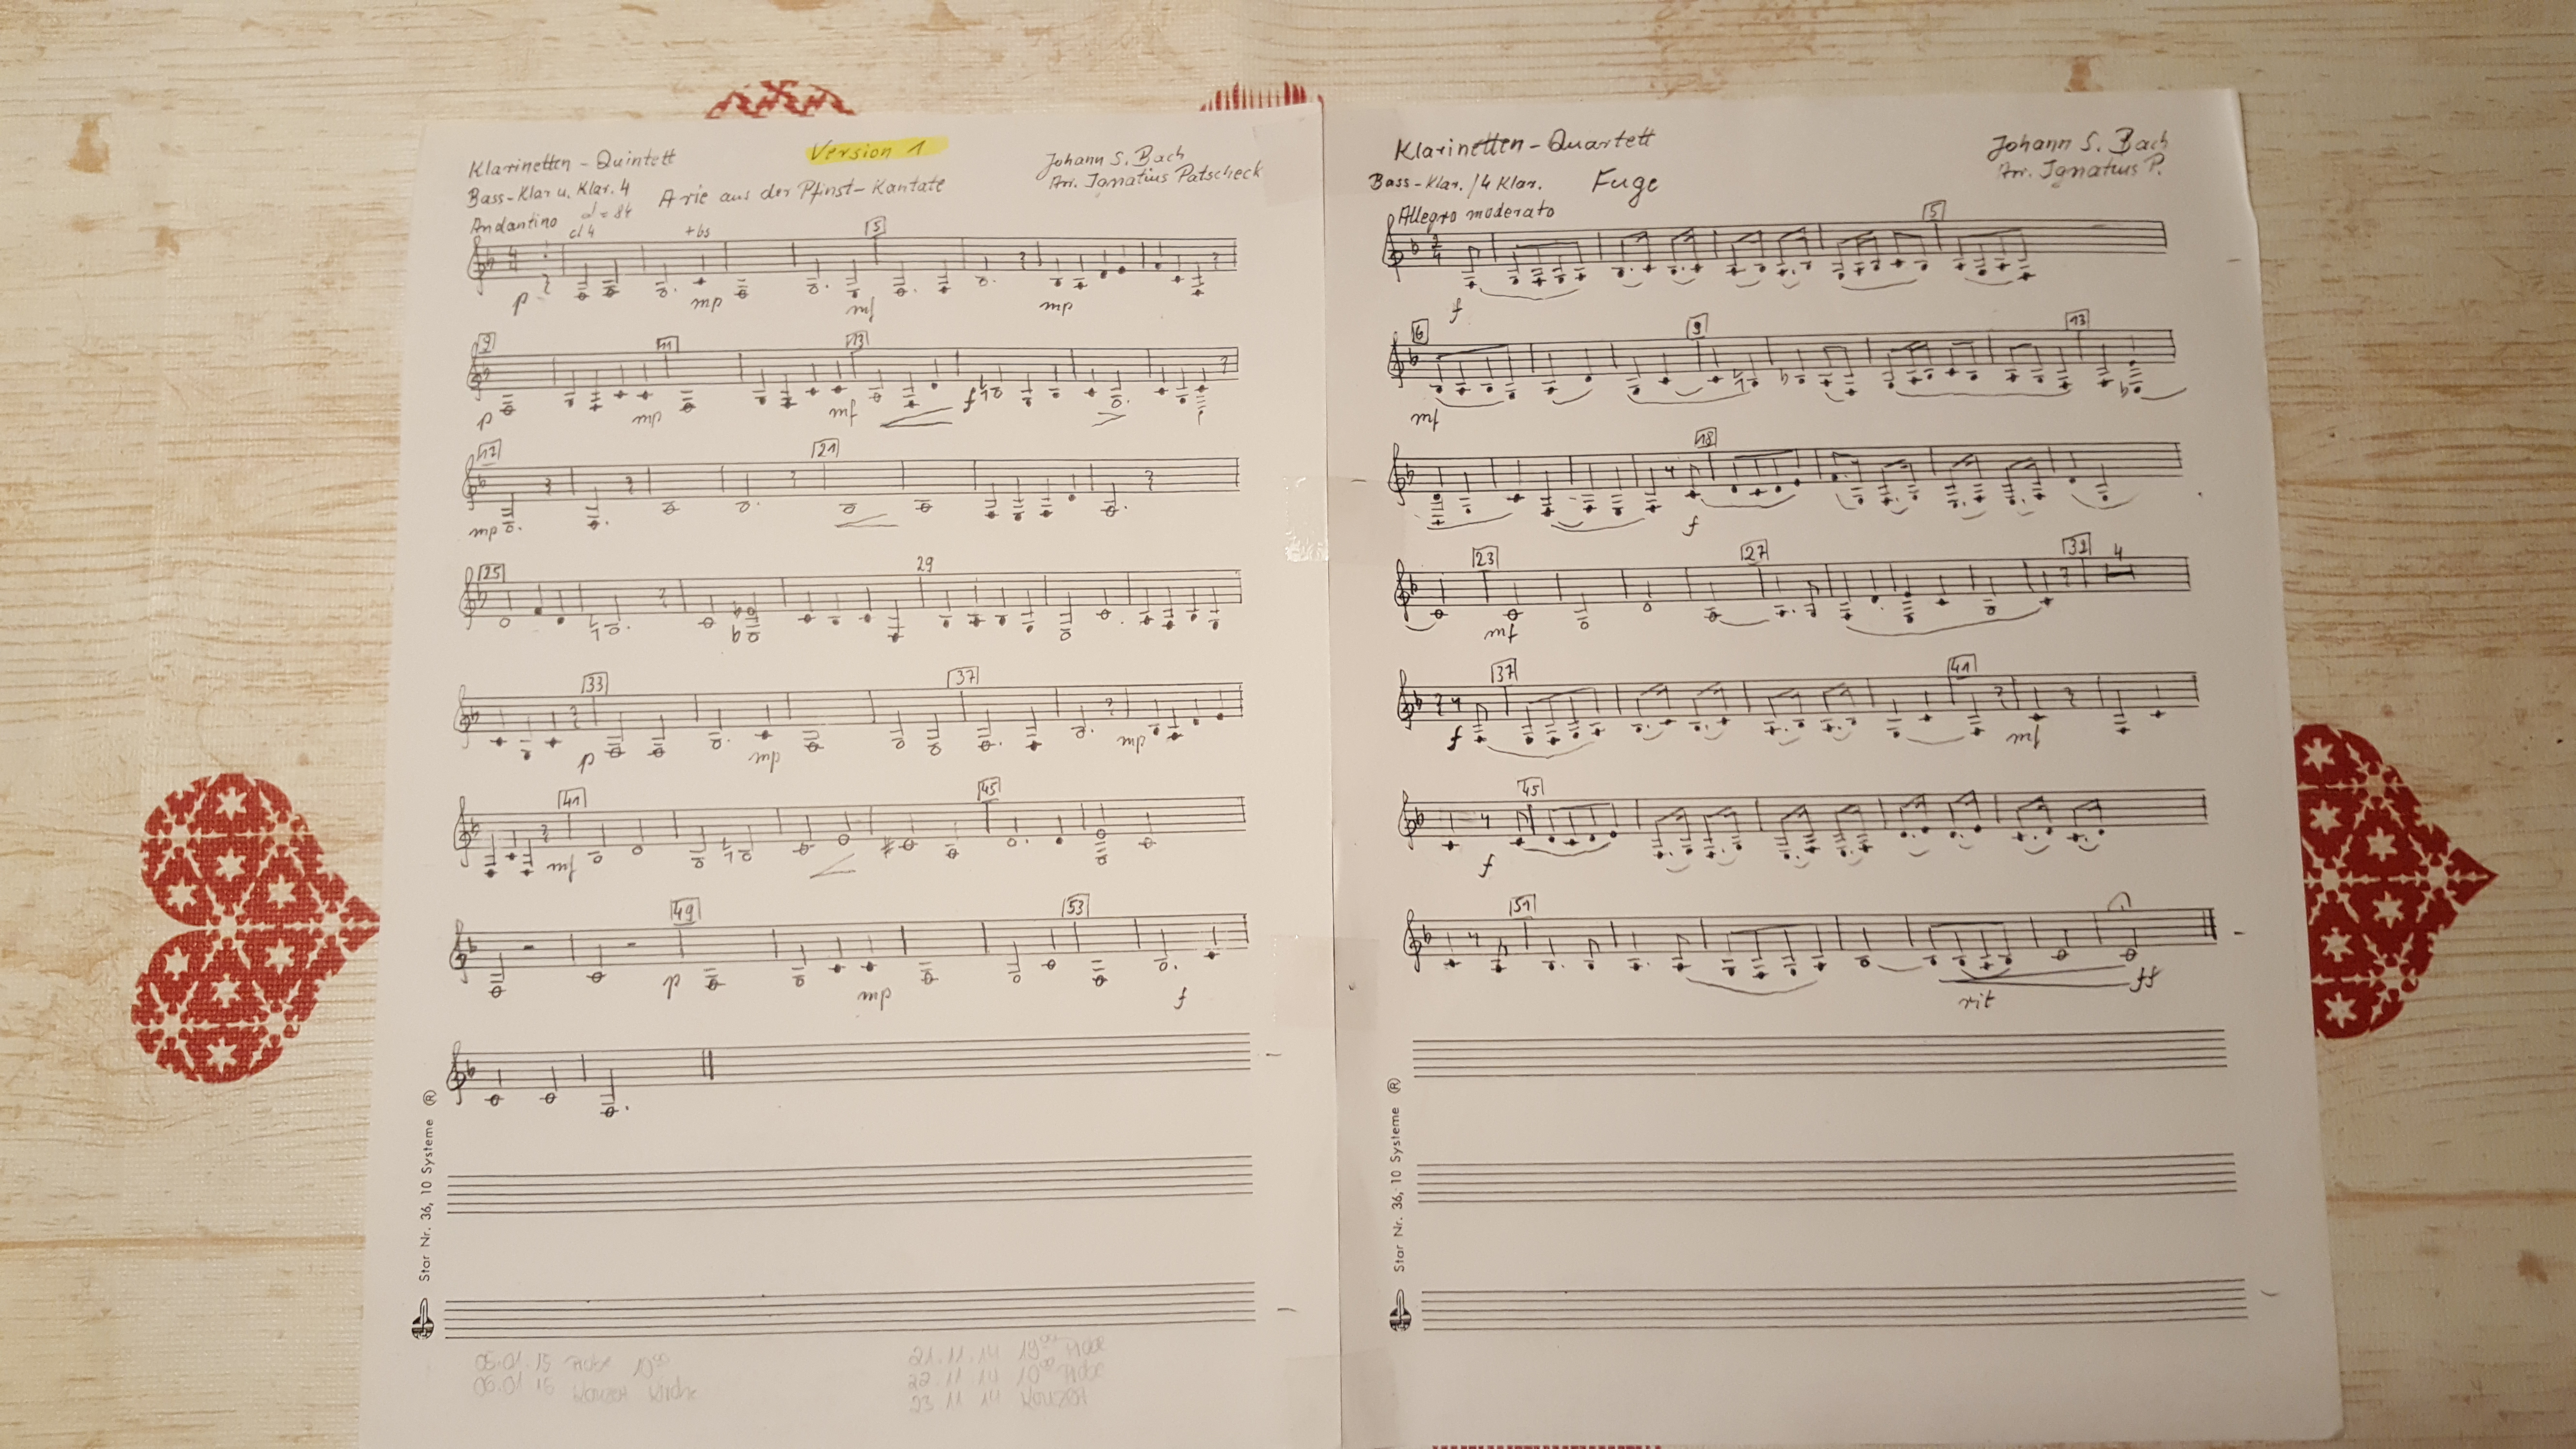 Klarinetten - Quintett
Version 1
Johann S. Bach
Bass-Klar u. Klar. 4
Arie aus der Pfinst-Kantate
Arr. Ignatius Patscheck
Andantino ♩ = 84
cl 4
+bs
5
p
mp
mf
mp
9
11
13
p
mp
mf
f
17
21
mp
25
29
33
37
p
mp
mp
41
45
mf
49
53
p
mp
f
Star Nr. 36, 10 Systeme ®
05.01.15 Probe 19⁰⁰
06.01 15 Konzert Kirche
21.11.14 19⁰⁰ Probe
22.11.14 10⁰⁰ Probe
23 11 14 Konzert
Klarinetten-Quartett
Johann S. Bach
Bass-Klar. / 4 Klar.
Fuge
Arr. Ignatius P.
Allegro moderato
2
4
5
f
6
9
13
mf
18
f
23
27
32
4
mf
37
41
f
mf
45
f
51
rit
ff
Star Nr. 36, 10 Systeme ®